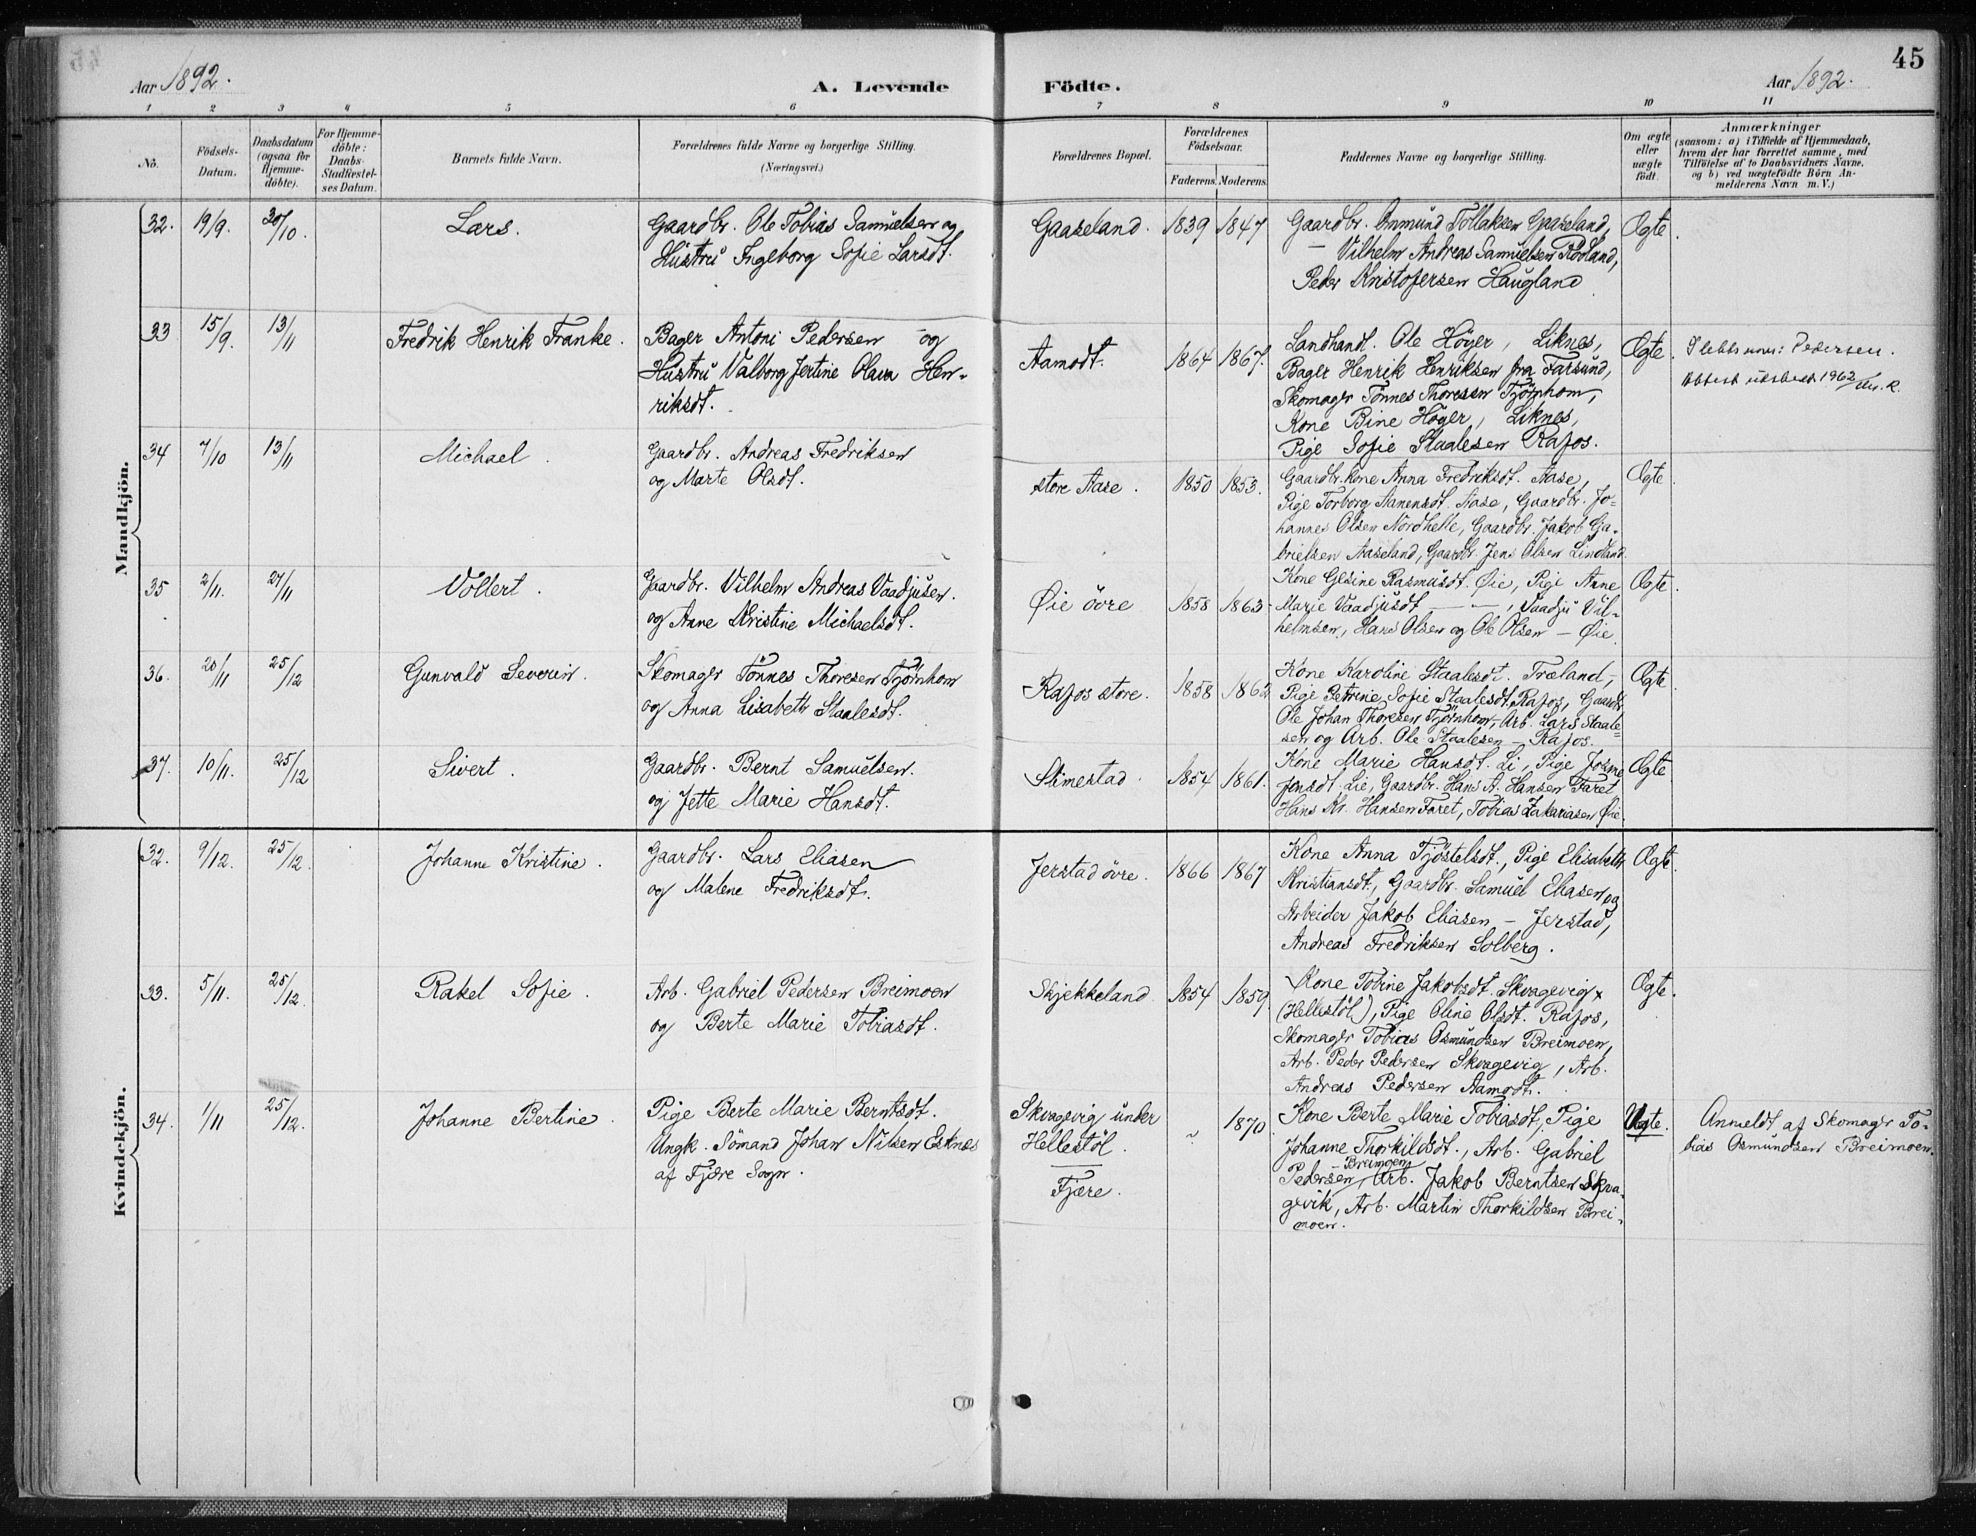 45
Aar 1892.
A. Levende Födte.
Aar 1892.
1 2 3 4 5 6 7 8 9 10 11
No.
Födsels-
Datum.
Daabsdatum
(ogsaa for
Hjemme-
döbte).
For Hjemme-
döbte:
Daabs-
Stadfæstel-
ses Datum.
Barnets fulde Navn.
Forældrenes fulde Navne og borgerlige Stilling.
(Næringsvei.)
Forældrenes Bopæl.
Forældrenes
Födselsaar.
Faderens. Moderens.
Faddernes Navne og borgerlige Stilling.
Om ægte
eller
uægte
födt.
Anmærkninger
(saasom: a) i Tilfælde af Hjemmedaab,
hvem der har forrettet samme, med
Tilföielse af to Daabsvidners Navne,
og b) ved uægtefödte Börn An-
melderens Navn m. V.)
Mandkjön.
32. 19/9. 30/10. Lars.
Gaardbr. Ole Tobias Samuelsen og
Hustru Ingeborg Sofie Larsdt.
Gaaseland. 1839 1847
Gaardbr. Onmund Tollaksen Gaaseland,
— Vilhelm Andreas Samuelsen Rödland,
Peder Kristofersen Haugland
Ægte.
33 15/9. 13/11 Fredrik Henrik Franke.
Bager Antoni Pedersen og
Hustru Valborg Jertine Olava Hen-
riksdt.
Aamodt. 1864 1867.
Landhandl. Ole Höyer, Liknes,
Bager Henrik Henriksen fra Farsund,
Skomager Tönnes Thoresen Tjörnhom,
Kone Bine Höyer, Liknes,
Pige Sofie Staalesen Rafos.
Ægte.
Slektsnavn: Pedersen.
Attest utstedt 1962
34 7/10 13/11 Michael.
Gaardbr. Andreas Fredriksen
og Marte Olsdt.
store Aase. 1850 1853.
Gaardbr. Kone Anna Fredriksdt. Aase,
Pige Torborg Aanensdt. Aase, Gaardbr. Jo-
hannes Olsen Nordhelle, Gaardbr. Jakob Ga-
brielsen Aaseland, Gaardbr. Jens Olsen Lindland
Ægte.
35 2/11. 27/11 Vollert.
Gaardbr. Vilhelm Andreas Vaadjusen.
og Anne Kristine Michaelsdt.
Øie övre 1858 1863.
Kone Gesine Rasmusdt. Øie, Pige Anne
Marie Vaadjusdt — — , Vaadju Vil-
helmsen, Hans Olsen og Ole Olsen — Øie
Ægte.
36. 20/11 25/12 Gunvald Severin.
Skomager Tönnes Thoresen Tjörnhom
og Anna Lisabeth Staalesdt.
Rafos store. 1858 1862
Kone Karoline Staalesdt. Træland,
Pige Petrine Sofie Staalesdt. Rafos, Gaardbr.
Ole Johan Thoresen Tjörnhom, Arb. Lars Staale-
sen og Arb. Ole Staalesen — Rafos.
Ægte
37. 10/11. 25/12 Sivert.
Gaardbr. Bernt Samuelsen.
og Jette Marie Hansdt.
Slimestad. 1854 1861.
Kone Marie Hansdt. Li, Pige
Jensdt. Lie, Gaardbr. Hans A. Hansen Faret
Hans Kr. Hansen Faret, Tobias Zakariasen Øie.
Ægte
Kvindekjön.
32. 9/12. 25/12. Johanne Kristine.
Gaardbr. Lars Eliasen
og Malene Fredriksdt.
Jerstad övre. 1866 1867
Kone Anna Tjöstelsdt., Pige Elisabeth
Kristiansdt., Gaardbr. Samuel Eliasen og
Arbeider Jakob Eliasen — Jerstad,
Andreas Fredriksen Solberg.
Ægte.
33. 5/11. 25/12. Rakel Sofie.
Arb. Gabriel Pedersen Breimoen
og Berte Marie Tobiasdt.
Skjekkeland. 1854 1859.
Kone Tobine Jakobsdt. Skvagevig
(Hellestöl), Pige Oline Olsdt. Rafos,
Skomager Tobias Osmundsen Breimoen,
Arb. Peder Pedersen Skvagevig, Arb.
Andreas Pedersen Aamodt.
Ægte.
34. 1/11 25/12. Johanne Bertine.
Pige Berte Marie Berntsdt.
Ungk. Sömand Johan Nilsen Esknes
af Fjære Sogn.
Skvagevig under
Hellestöl.
Fjære.
1870.
Kone Berte Marie Tobiasdt., Pige
Johanne Thorkildsdt., Arb. Gabriel
Breimoen
Pedersen, Arb. Jakob Berntsen Skva-
gevik, Arb. Martin Thorkildsen Brei-
moen.
Uægte.
Anmeldt af Skomager To-
bias Osmundsen Breimoen.